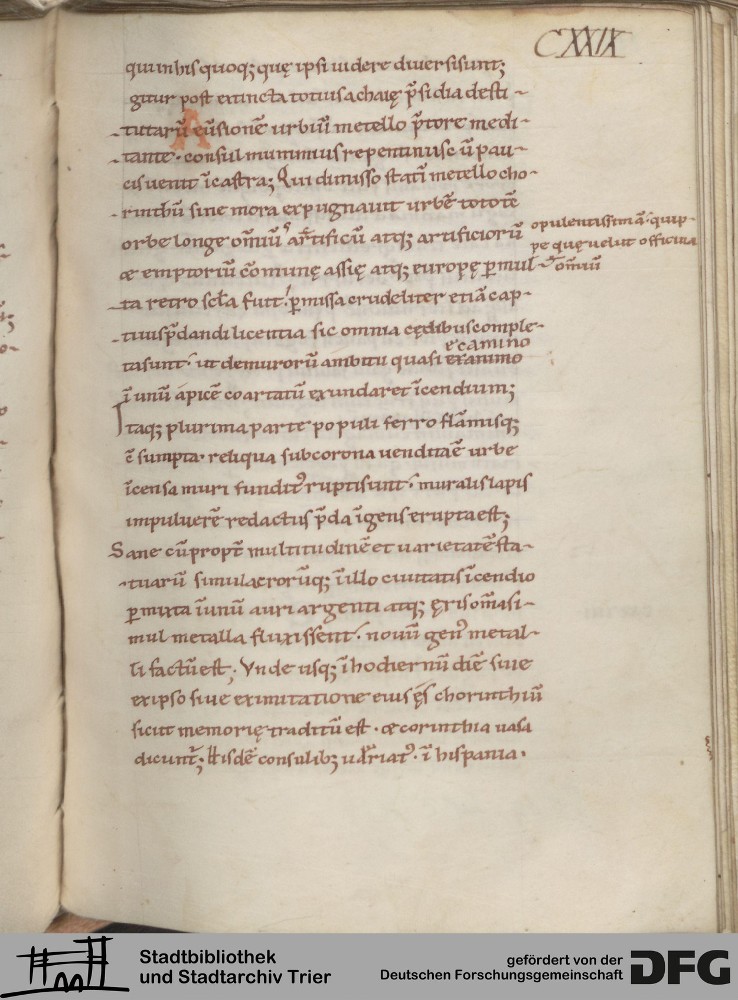 CXXIX
qui in his quoq; quę ipsi uidere diuersi sunt;
gitur post extincta totius achaię p̄sidia desti-
tutarū eūsionē urbiū metello p̄tore medi-
tante· consul mummius repentinus cū pau-
cis uenit ī castra; Qui dimisso statī metello cho-
rinthū sine mora expugnauit urbē toto tē
orbe longe om̄iū artificū atq; artificiorū opulentissimā· quip-
pe quę uelut officina om̄iū
& emptoriū cōmunę assię atq; europę ꝑ mul-
ta retro scła fuit! ꝑmissa crudeliter etiā cap-
tiuis p̄dandi licentia sic omnia cędibus comple-
e camino
ta sunt· ut de murorū ambitu quasi exanimo
ī unū apicē coartatū exundaret īcendium;
Itaq; plurima parte populi ferro flāmisq;
ēsumpta· reliqua sub corona uendita ē urbe
īcensa muri fundit᷒ rupti sunt· muralis lapis
ī puluerē redactus p̄da īgens erupta est;
Sane cū propt̄ multitudinē et uarietatē sta-
tuarū simulacrorūq; ī illo ciuitatis īcendio
ꝑmixta ī unū auri argenti atq; ęris om̄a si-
mul metalla fluxissent· nouū gen᷒ metal-
li factū est; Vnde usq; ī hodiernū diē siue
ex ipso siue ex imitatione eius ęs chorinthiū
sicut memorię traditū est· & corinthia uasa
dicunt᷒; Hisdē consulib; uāriat᷒· ī hispania·
Stadtbibliothek
und Stadtarchiv Trier
gefördert von der
Deutschen Forschungsgemeinschaft
DFG